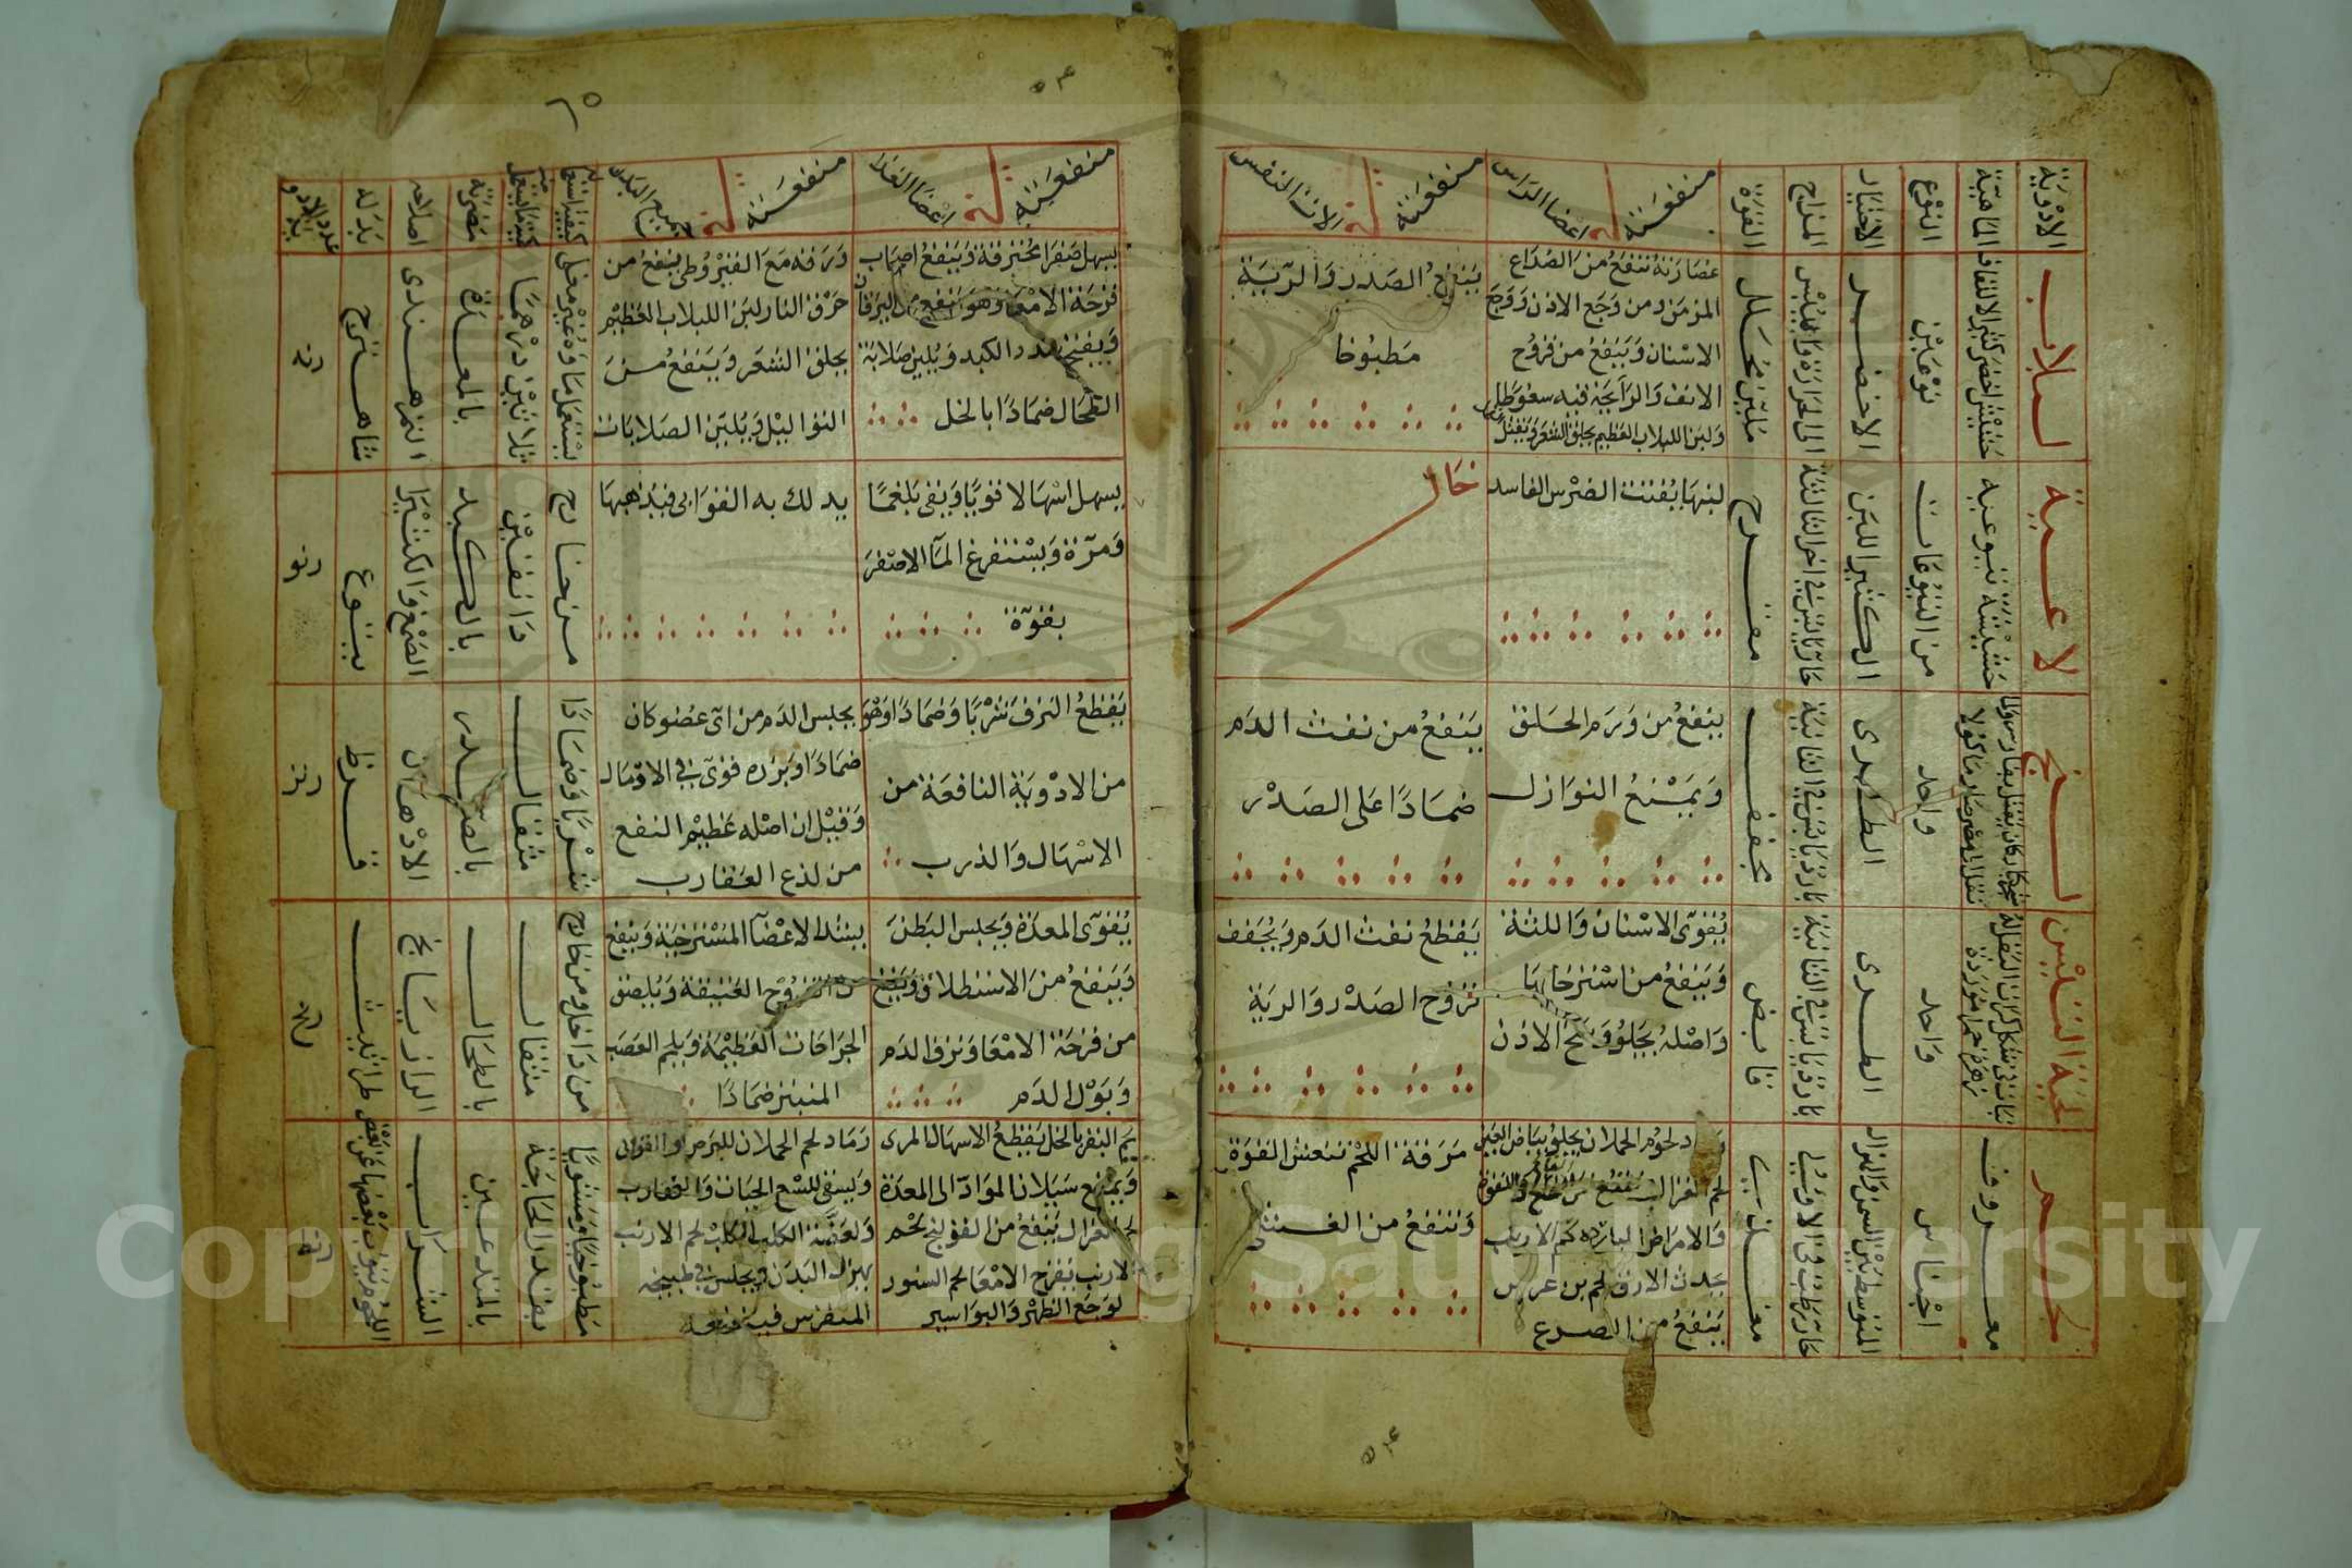 الادوية
الماهية
النوع
الاختيار
المزاج
القوة
منفعته في اعضا الراس
منفعته في الات النفس
لبلاب
حشيش اخضر كثير الالتفاف
نوعين
الاخضر
الى الحرارة واليبس
ملين محلل
عصارته تنفع من الصداع
المزمن ومن وجع الاذن ووجع
الاسنان وينفع من قروح
الانف والرايحة فيه سعوطا
ولبن اللبلاب العظيم يحلق الشعر ويقتل
ينفع الصدر والرية
مطبوخا
لاعية
حشيشة يتوعية
من اليتوعات
الكثير اللبن
حار يابس في اخر الثالثة
مقرح
لبنها يفتت الضرس الفاسد
خال
لبخ
واحد
الطرى
بارد يابس في الثانية
مجفف
ينفع من ورم الحلق
ويمنع النوازل
ينفع من نفث الدم
ضمادا على الصدر
لحية التيس
واحد
الطرى
بارد يابس في الثانية
قابض
يقوى الاسنان واللثة
وينفع من استرخايها
واصله يجلو وسخ الاذن
يقطع نفث الدم ويجفف
قروح الصدر والرية
لحم
معروف
اجناس
المتوسط بين السمن والهزال
حار رطب في الاولى
مغذى
لحوم الحملان يجلو بياض العين
والامراض الباردة لحم الارنب
يحدث الارق لحم بن عرس
ينفع من الصرع
مرقة اللحم تنعش القوة
وتنفع من الغشى
٥٤
منفعته في اعضا الغذا
منفعته في جميع البدن
كيفية استعماله
كمية ما يستعمل
مضرته
اصلاحه
بدله
عدد الادوية
يسهل صفرا محترقة وينفع اصحاب
قرحة الامعا وهو ينفع من اليرقان
ويفتح سدد الكبد ويلين صلابة
الطحال ضمادا بالخل
ورقه مع القيروطى ينفع من
حرق النار لبن اللبلاب العظيم
يحلق الشعر وينفع من
الثواليل ويلين الصلابات
يستعمل ماوه غير مغلى
ثلاثين درهما
بالمعدة
التمر هندى
شاهترج
رنه
يسهل اسهالا قويا ويقى بلغما
ومرة ويستفرغ الما الاصفر
بقوة
يدلك به القوابى فيذهبها
من خارج
دانقين
بالكبد
الصمغ والكثيرا
يتوع
رنو
يقطع النزف شربا وضمادا وهو
من الادوية النافعة من
الاسهال والذرب
يحبس الدم من اى عضو كان
ضمادا وبزره قوى في الاوصال
وقيل ان اصله عظيم النفع
من لذع العقارب
شربا وضمادا
مثقال
بالصدر
الادهان
قرظ
رنز
يقوى المعدة ويحبس البطن
وينفع من الاستطلاق وينفع
من قرحة الامعا ونزف الدم
وبول الدم
يشد الاعضا المسترخية وينفع
من القروح العتيقة ويلصق
الجراحات العظيمة ويلحم العصب
المنبتر ضمادا
من داخل ومن خارج
مثقال
بالطحال
الرازيانج
طراثيث
رنح
لحم البقر بالخل يقطع الاسهال المرى
ويمنع سيلان المواد الى المعدة
لحم الغزال ينفع من القولنج لحم
الارنب ينفع قرح الامعا لحم السنور
لوجع الظهر والبواسير
رماد لحم الحملان للبرص والقوابى
ويسقى للسع الحيات والعقارب
ولعضة الكلب الكلب لحم الارنب
يهزل البدن ويجلس في طبيخه
المنقرس فينفعه
مطبوخا ومشويا
بقدر الحاجة
بالمتدعين
الشراب
اللحوم ينوب بعضها عن بعض
رنط
Copyright © King Saud University